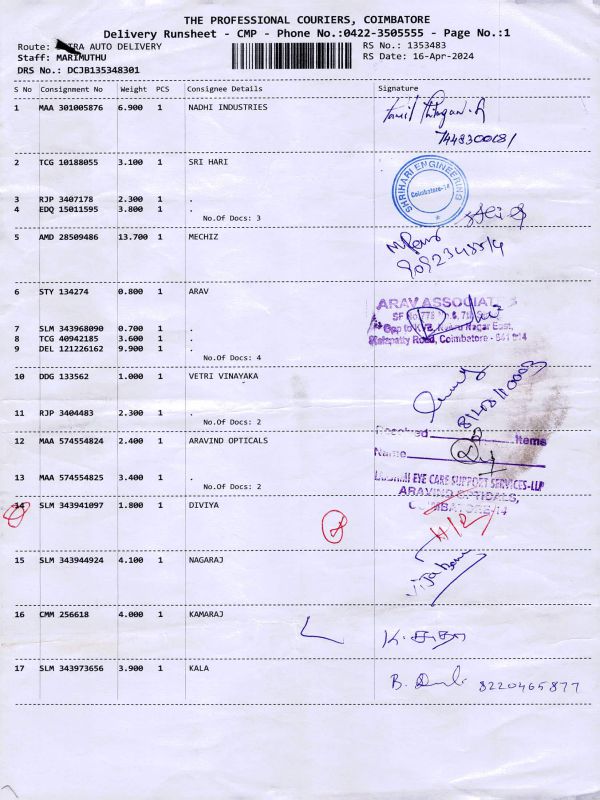 THE PROFESSIONAL COURIERS, COIMBATORE
Delivery Runsheet - CMP - Phone No.:0422-3505555 - Page No.:1
Route: AUTO DELIVERY RS No.: 1353483
Staff: MARIMUTHU RS Date: 16-Apr-2024
DRS No.: DCJB135348301
S No Consignment No Weight PCS Consignee Details Signature
1 MAA 301005876 6.900 1 NADHI INDUSTRIES
2 TCG 10188055 3.100 1 SRI HARI
SHRIHARI ENGINEERING
Coimbatore-14
3 RJP 3407178 2.300 1 .
4 EDQ 15011595 3.800 1 .
No.Of Docs: 3
5 AMD 28509486 13.700 1 MECHIZ
6 STY 134274 0.800 1 ARAV
ARAV ASSOCIATES
7 SLM 343968090 0.700 1 .
8 TCG 40942185 3.600 1 .
9 DEL 121226162 9.900 1 .
Road, Coimbatore - 641 014
No.Of Docs: 4
10 DDG 133562 1.000 1 VETRI VINAYAKA
11 RJP 3404483 2.300 1 .
No.Of Docs: 2
Received Items
12 MAA 574554824 2.400 1 ARAVIND OPTICALS
Name
13 MAA 574554825 3.400 1 .
No.Of Docs: 2
EYE CARE SUPPORT SERVICES-LLP
ARAVIND OPTICALS,
COIMBATORE-14
14 SLM 343941097 1.800 1 DIVIYA
15 SLM 343944924 4.100 1 NAGARAJ
16 CMM 256618 4.000 1 KAMARAJ
17 SLM 343973656 3.900 1 KALA
8220465877